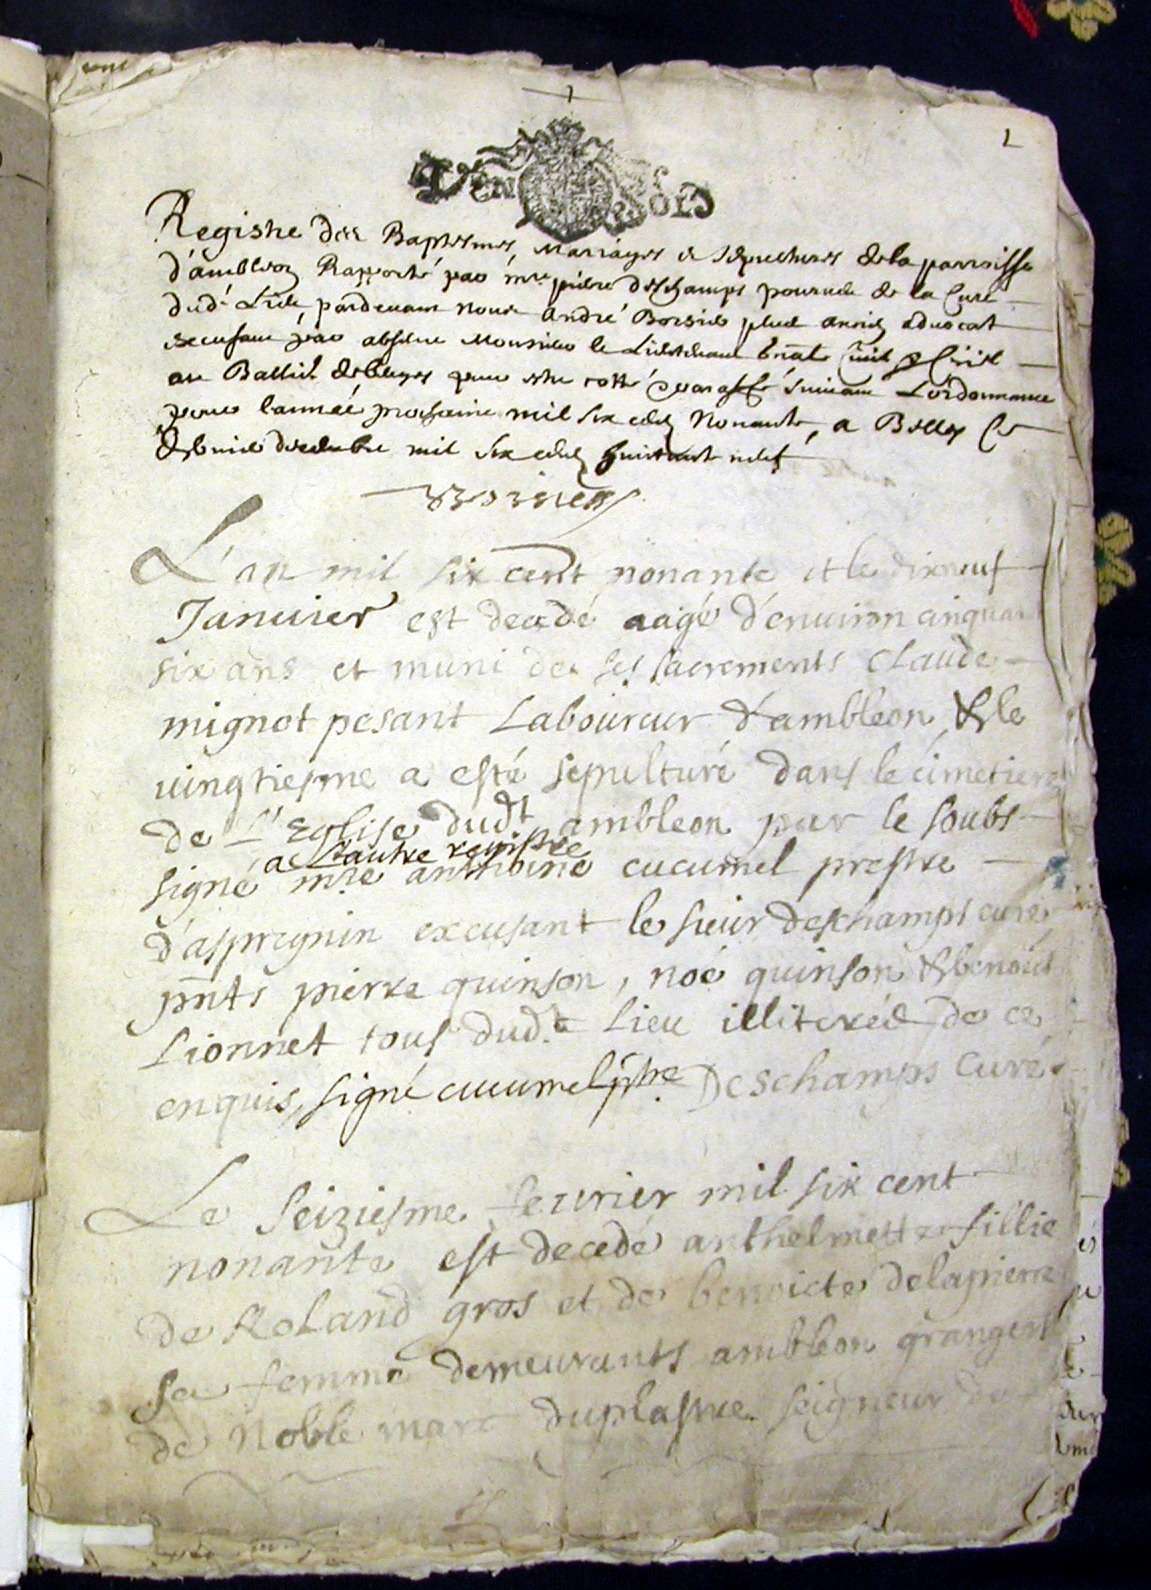 1
1
Registre des Baptesmes, Mariages et sepultures de la parroisse
d'ambleon Rapporté par mre pierre deschamps pourveu de la Cure
dud.t Lieu, pardevant nous André plus ancien advocat
excusant par absence Monsieur le Lieutenant civil
au Bailli. pour estre cotté et paraffé suivant L'ordonnance
pour l'année prochaine mil six cens Nonante, a Belley ce
decembre mil six cens huictante neuf
L'an mil six cent nonante et le dixneuf
Januier est decedé aagé d'enuiron cinquan
six ans et muni de ses sacrements Claude
mignot pesant Laboureur d'ambleon, & le
uingtiesme a esté sepulturé dans le cimetiere
de L'Eglise dudt ambleon par le soubs
a L'autre registre
signé mre anthoine cucumel prestre
d'aspregnin excusant le sieur deschamps curé
pnts pierre quinson, noé quinson & benoist
Lionnet tous dud.t Lieu illiteréz de ce
enquis, signé cucumel ptre Deschamps Curé.
Le seiziesme feurier mil six cent
nonante est decedé anthelmette fillie
de Roland gros et de benoicte delapierre
sa femme demeurants ambleon grangers
de Noble marc duplastre seigneur de